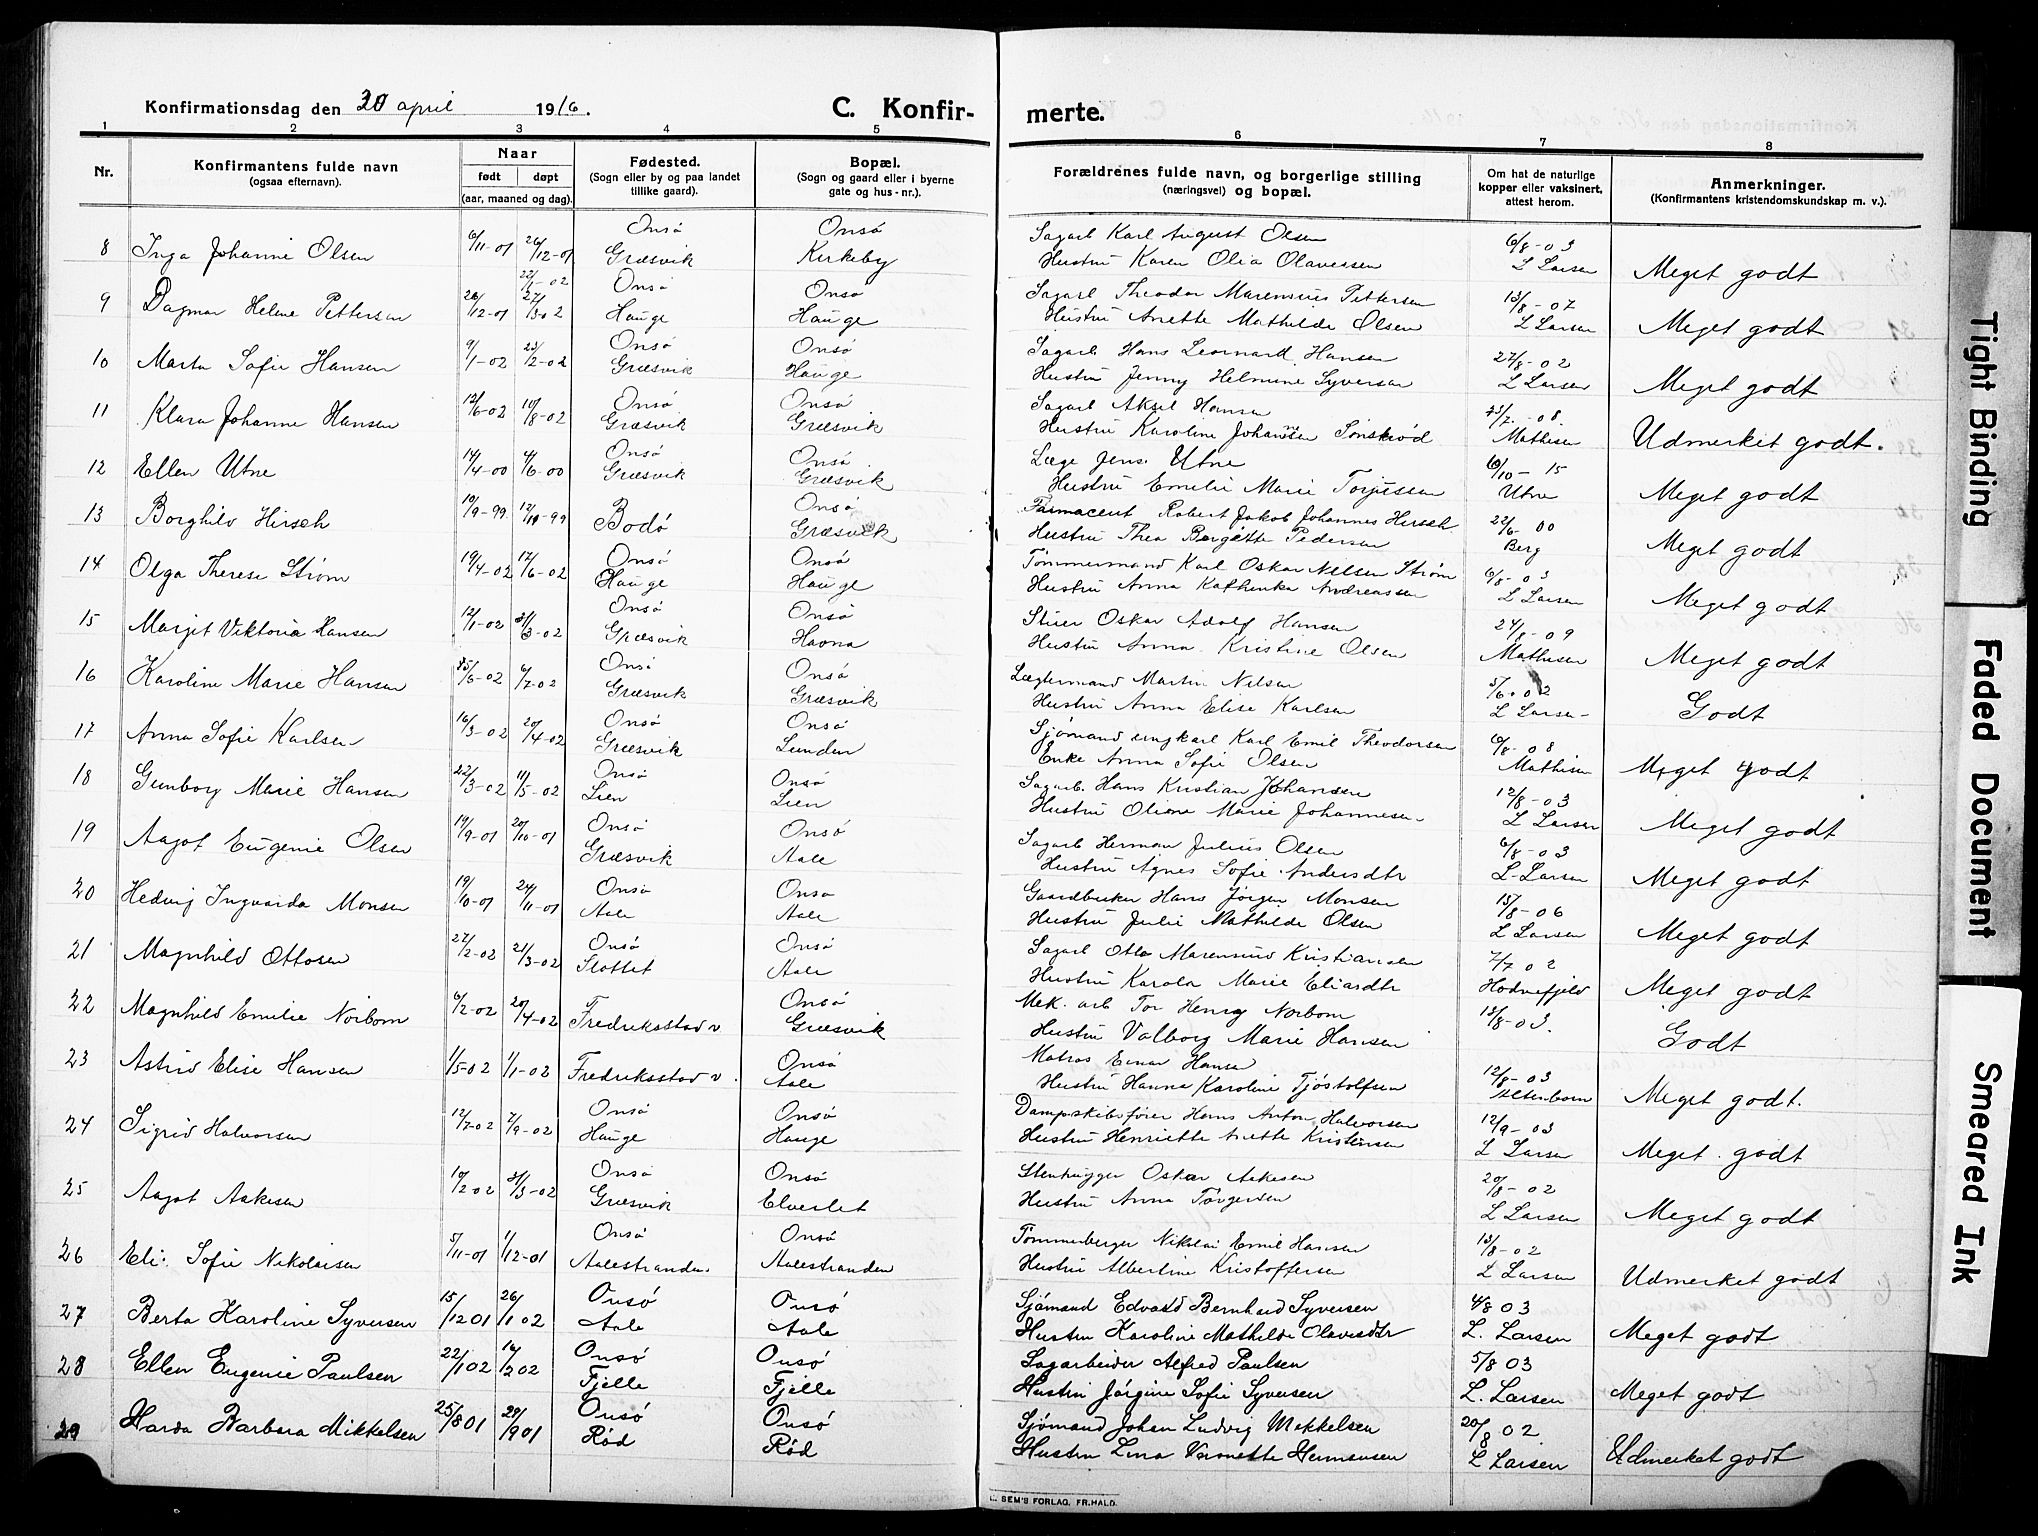 Konfirmationsdag den 30 april 1916.
C. Konfirmerte.
1 2 3 4 5 6 7 8
Nr.
Konfirmantens fulde navn
(ogsaa efternavn).
Naar
født døpt
(aar, maaned og dag).
Fødested.
(Sogn eller by og paa landet tillike gaard).
Bopæl.
(Sogn og gaard eller i byerne gate og hus-nr.).
Forældrenes fulde navn, og borgerlige stilling
(næringsvei) og bopæl.
Om hat de naturlige kopper eller vaksinert, attest herom.
Anmerkninger.
(Konfirmantens kristendomskundskap m. v.).
8 Inga Johanne Olsen 6/11-01 26/12-01 Onsø Græsvik Onsø Kirkeby Sagarb Karl August Olsen Hustru Karen Olia Olavesen 6/8-03 L Larsen Meget godt
9 Dagmar Helene Pettersen 26/12-01 27/3-02 Onsø Hauge Onsø Hauge Sagarb Theodor Marensius Pettersen Hustru Anette Mathilde Olsen 13/8-07 L Larsen Meget godt
10 Marta Sofie Hansen 9/1-02 23/2-02 Onsø Græsvik Onsø Hauge Sagarb Hans Leornard Hansen Hustru Jenny Helmine Syversen 27/8-02 L Larsen Meget godt
11 Klara Johanne Hansen 12/6-02 10/8-02 Onsø Græsvik Onsø Græsvik Sagarb Aksel Hansen Hustru Karoline Johanne Tønskrød 23/7-08. Mathisen Udmerket godt.
12 Ellen Utne 14/4-00 4/6-00 Onsø Græsvik Onsø Græsvik Læge Jens Utne Hustru Emelie Marie Torjussen 6/10-15 Utne Meget godt
13 Borghild Hirsch 10/9-99. 12/10-99 Bodø Onsø Græsvik Farmaceut Robert Jakob Johannes Hirsch Hustru Thea Bergette Pedersen 22/6-00 Berg Meget godt
14 Olga Therese Strøm 19/4-02 17/6-02 Onsø Hauge Onsø Hauge Tømmermand Karl Oskar Nilsen Strøm Hustru Anna Kathinka Andreassen 6/8-03 L Larsen Meget godt
15 Margit Viktoria Hansen 12/1-02 31/3-02 Onsø Græsvik Onsø Havna Stuer Oskar Adolf Hansen Hustru Anna Kristine Olsen 24/8-09 Mathisen Meget godt
16 Karoline Marie Hansen 6/7-02 Onsø Græsvik Onsø Græsvik Lægtermand Martin Nilsen Hustru Anna Elise Karlsen 5/6-02 L Larsen- Godt
17 Anna Sofie Karlsen 16/3-02 20/4-02 Onsø Græsvik Onsø Lunden Sjømand ungkarl Karl Emil Theodorsen Enke Anna Sofie Olsen 6/8-08 Mathisen Meget godt
18 Gunborg Marie Hansen 22/3-02 11/5-02 Onsø Lien Onsø Lien Sagarb. Hans Kristian Johansen Hustru Oliane Marie Johannesen 12/8-03 L Larsen Meget godt
19 Aagot Eugenie Olsen 19/9-01 20/10-01 Onsø Græsvik Onsø Aale Sagarb Herman Julius Olsen Hustru Agnes Sofie Andersdtr 6/8-03 L Larsen Meget godt
20 Hedvig Ingvarda Monsen 19/10-01 24/11-01 Onsø Aale Onsø Aale Gaardbruker Hans Jørgen Monsen Hustru Julie Mathilde Olsen 15/8-06 L Larsen Meget godt
21 Magnhild Ottosen 27/2-02 21/3-02 Onsø Slottet Onsø Aale Sagarb Otto Marensius Kristiansen Hustru Karola Marie Eliardtr 7/7 02 Hodnefjeld Meget godt
22 Magnhild Emilie Norbom 6/2-02 20/4-02 Fredriksstad v Onsø Græsvik Mek. arb Tor Henry Norbom Hustru Valborg Marie Hansen 13/8-03. Godt
23 Astrid Elise Hansen 1/5-02 1/1-02 Fredriksstad v. Onsø Aale Matros Einar Hansen Hustru Hanna Karoline Tjøstolfsen 12/8-03 Meget godt.
24 Sigrid Halvorsen 12/7-02 7/9-02 Onsø Hauge Onsø Hauge Dampskibsfører Hans Anton Halvorsen Hustru Henriette Anette Kristensen 12/9-03 L Larsen Meget godt
25 Aagot Aakesen 10/2-02 31/3-02 Onsø Græsvik Onsø Elverlet Stenhugger Oskar Aakesen Hustru Anna Torgersen 20/8-02 L Larsen Meget godt
26 Eli Sofie Nikolaisen 5/11-01 1/12-01 Onsø Aalestranden. Onsø Aalestranden Tømmerberger Nikolai Emil Hansen Hustru Albertine Kristoffersen 13/8-02 L Larsen Udmerket godt
27 Berta Karoline Syversen 15/12 01 26/1 02 Onsø Aale Onsø Aale Sjømand Edvard Bernhard Syversen Hustru Karoline Mathilde Olavesdtr 4/8 03 L. Larsen Meget godt
28 Ellen Eugenie Paulsen 22/1 02 16/2 02 Onsø Fjelle Onsø Fjelle Sagarbeider Alfred Paulsen Hustru Jørgine Sofie Syversen 5/8 03 L. Larsen Meget godt
29 Harda Barbara Mikkelsen 25/8 01 29/9 01 Onsø Rød Onsø Rød Sjømand Johan Ludvig Mikkelsen Hustru Lina Vernette Hermansen 20/8 02 L Larsen Udmerket godt
SEM'S FORLAG, FR.HALD.
Tight Binding
Faded Document
Smeared Ink